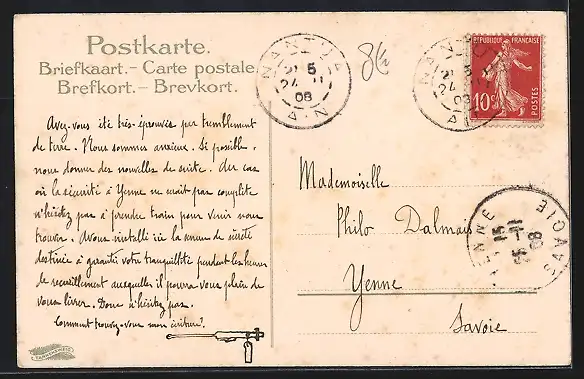 Postkarte.
Briefkaart. - Carte postale
Brefkort. - Brevkort.
NANTUA
5
24 - 11
08
AIN
NANTUA
5
24
08
AIN
RÉPUBLIQUE FRANÇAISE
10c
POSTES
Avez-vous été très-éprouvés par tremblement
de terre. Nous sommes anxieux. Si possible,
nous donner des nouvelles de suite. Au cas
où la sécurité à Yenne ne serait pas complète
n'hésitez pas à prendre train pour venir nous
trouver. Avons installé ici la serrure de sûreté
destinée à garantir votre tranquillité pendant les heures
de recueillement auxquelles il pourra vous plaire de
vous livrer. Donc n'hésitez pas.
Comment trouvez-vous mon écriture?
Mademoiselle
Philo Dalmais
Yenne
Savoie
YENNE
SAVOIE
08